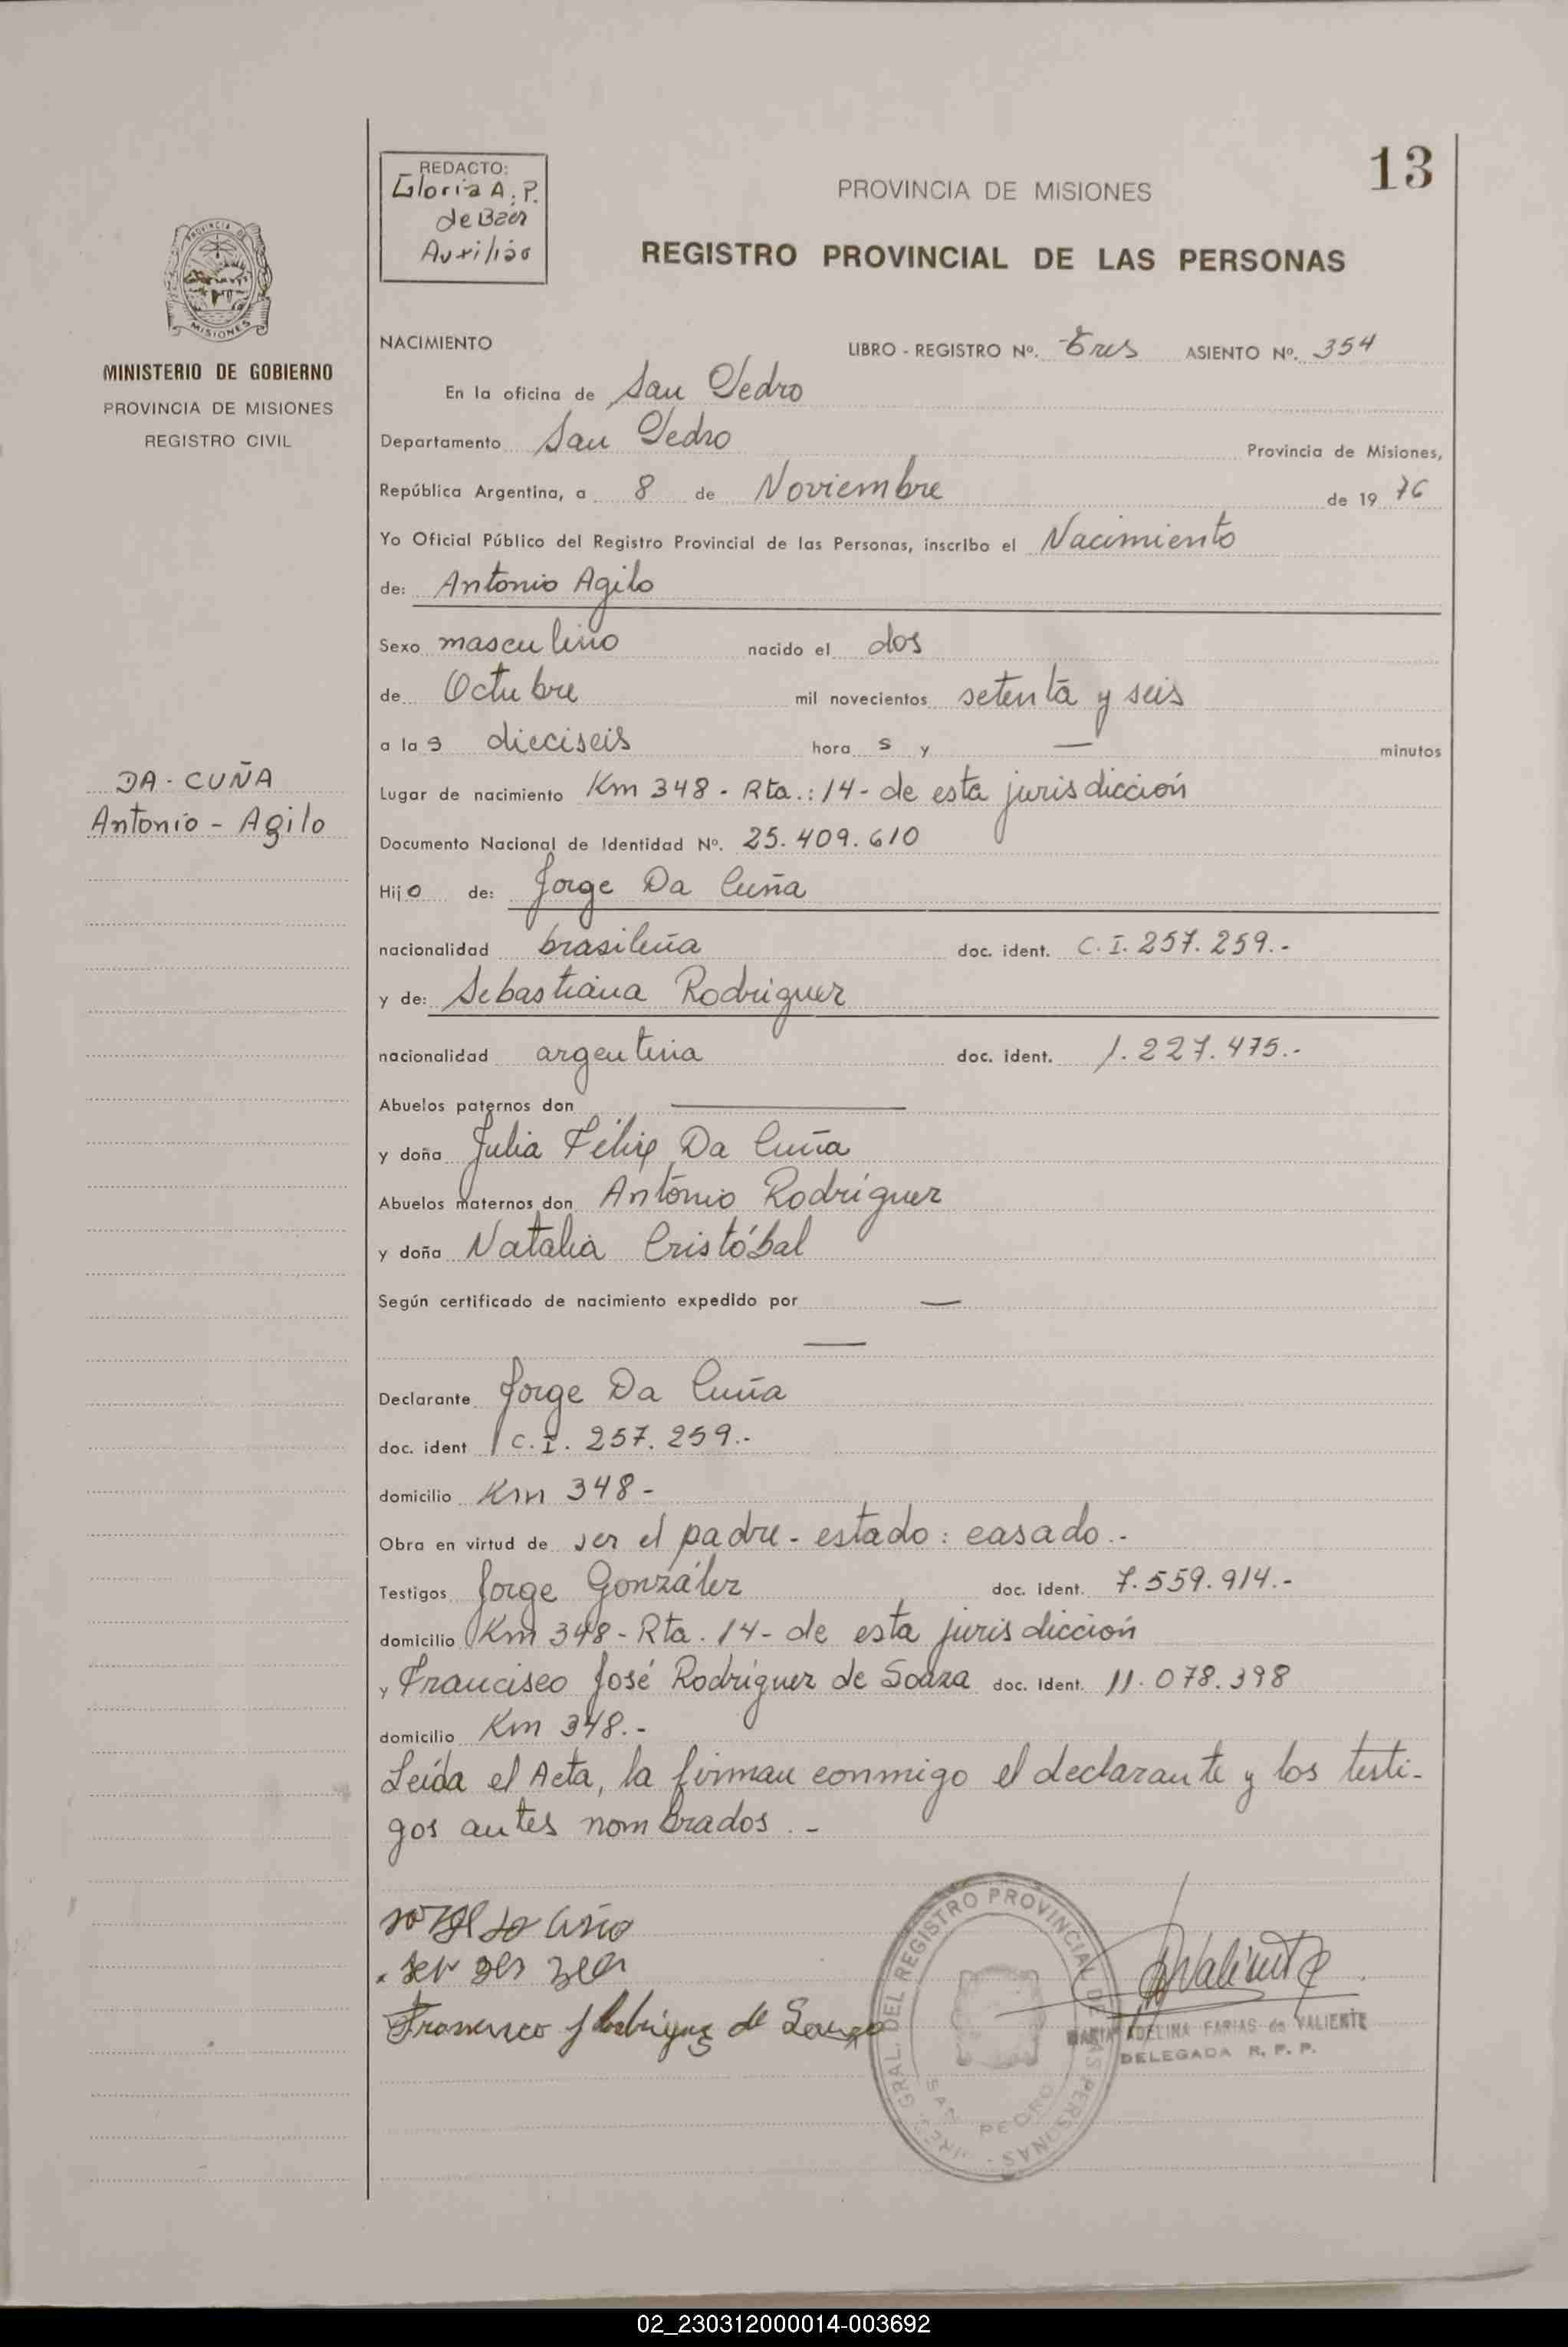 13
REDACTO:
Gloria A. P.
de Baer
Auxiliar
PROVINCIA DE MISIONES
REGISTRO PROVINCIAL DE LAS PERSONAS
PROVINCIA DE
MISIONES
MINISTERIO DE GOBIERNO
PROVINCIA DE MISIONES
REGISTRO CIVIL
DA - CUÑA
Antonio - Agilo
NACIMIENTO LIBRO - REGISTRO Nº. Tres ASIENTO Nº. 354
En la oficina de San Pedro
Departamento San Pedro Provincia de Misiones,
República Argentina, a 8 de Noviembre de 19 76
Yo Oficial Público del Registro Provincial de las Personas, inscribo el Nacimiento
de: Antonio Agilo
Sexo masculino nacido el dos
de Octubre mil novecientos setenta y seis
a la s dieciseis hora s y — minutos
Lugar de nacimiento Km 348 - Rta.: 14 - de esta jurisdicción
Documento Nacional de Identidad Nº. 25.409.610
Hijo de: Jorge Da Cuña
nacionalidad brasileña doc. ident. C.I. 257.259.-
y de: Sebastiana Rodriguez
nacionalidad argentina doc. ident. 1.227.475.-
Abuelos paternos don —
y doña Julia Félix Da Cuña
Abuelos maternos don Antonio Rodríguez
y doña Natalia Cristóbal
Según certificado de nacimiento expedido por —
—
Declarante Jorge Da Cuña
doc. ident C.I. 257.259.-
domicilio Km 348 -
Obra en virtud de ser el padre - estado: casado.-
Testigos Jorge González doc. ident. 7.559.914.-
domicilio Km 348 - Rta. 14 - de esta jurisdicción
y Francisco José Rodríguez de Souza doc. ident. 11.078.398
domicilio Km 348.-
Leída el Acta, la firman conmigo el declarante y los testi-
gos antes nombrados.-
Francisco J Rodriguez de Souza
DIREC. GRAL. DEL REGISTRO PROVINCIAL DE LAS PERSONAS
SAN PEDRO
MARIA ADELINA FARIAS de VALIENTE
DELEGADA R. P. P.
02_230312000014-003692